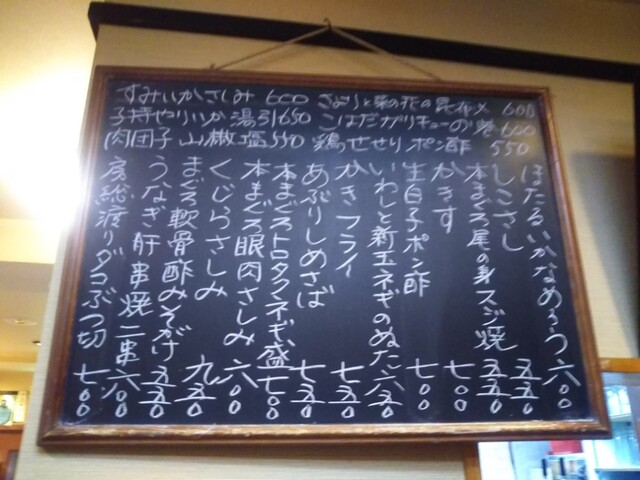 すみいかさしみ 600 さよりと菜の花の昆布〆 600
子持やりいか湯引650 こはだガリキューのり巻 600
肉団子 山椒塩550 鶏せせりポン酢 550
ほたるいかなめろう 六〇〇
しこさし 五五〇
本まぐろ尾の身スジ焼 五五〇
かきす 七〇〇
生白子ポン酢 七〇〇
いわしと新玉ネギのぬた 六五〇
かきフライ 七五〇
あぶりしめさば 七五〇
本まぐろトロタクネギ盛 七〇〇
本まぐろ眼肉さしみ 六〇〇
くじらさしみ 九五〇
まぐろ軟骨酢みそがけ 五五〇
うなぎ肝串焼二串 六〇〇
房総渡りダコぶつ切 七〇〇